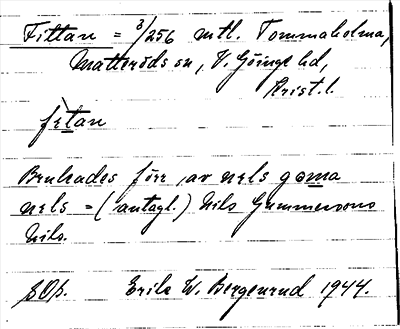 Fittan = 3/256 mtl. Tommaholma,
Matteröds sn, V. Göinge hd,
Krist. l.
fetan
Brukades förr av nels goma
nels = (antagl.) Nils Gummessons
Nils.
SOf. Erik W. Bergenrud 1944.